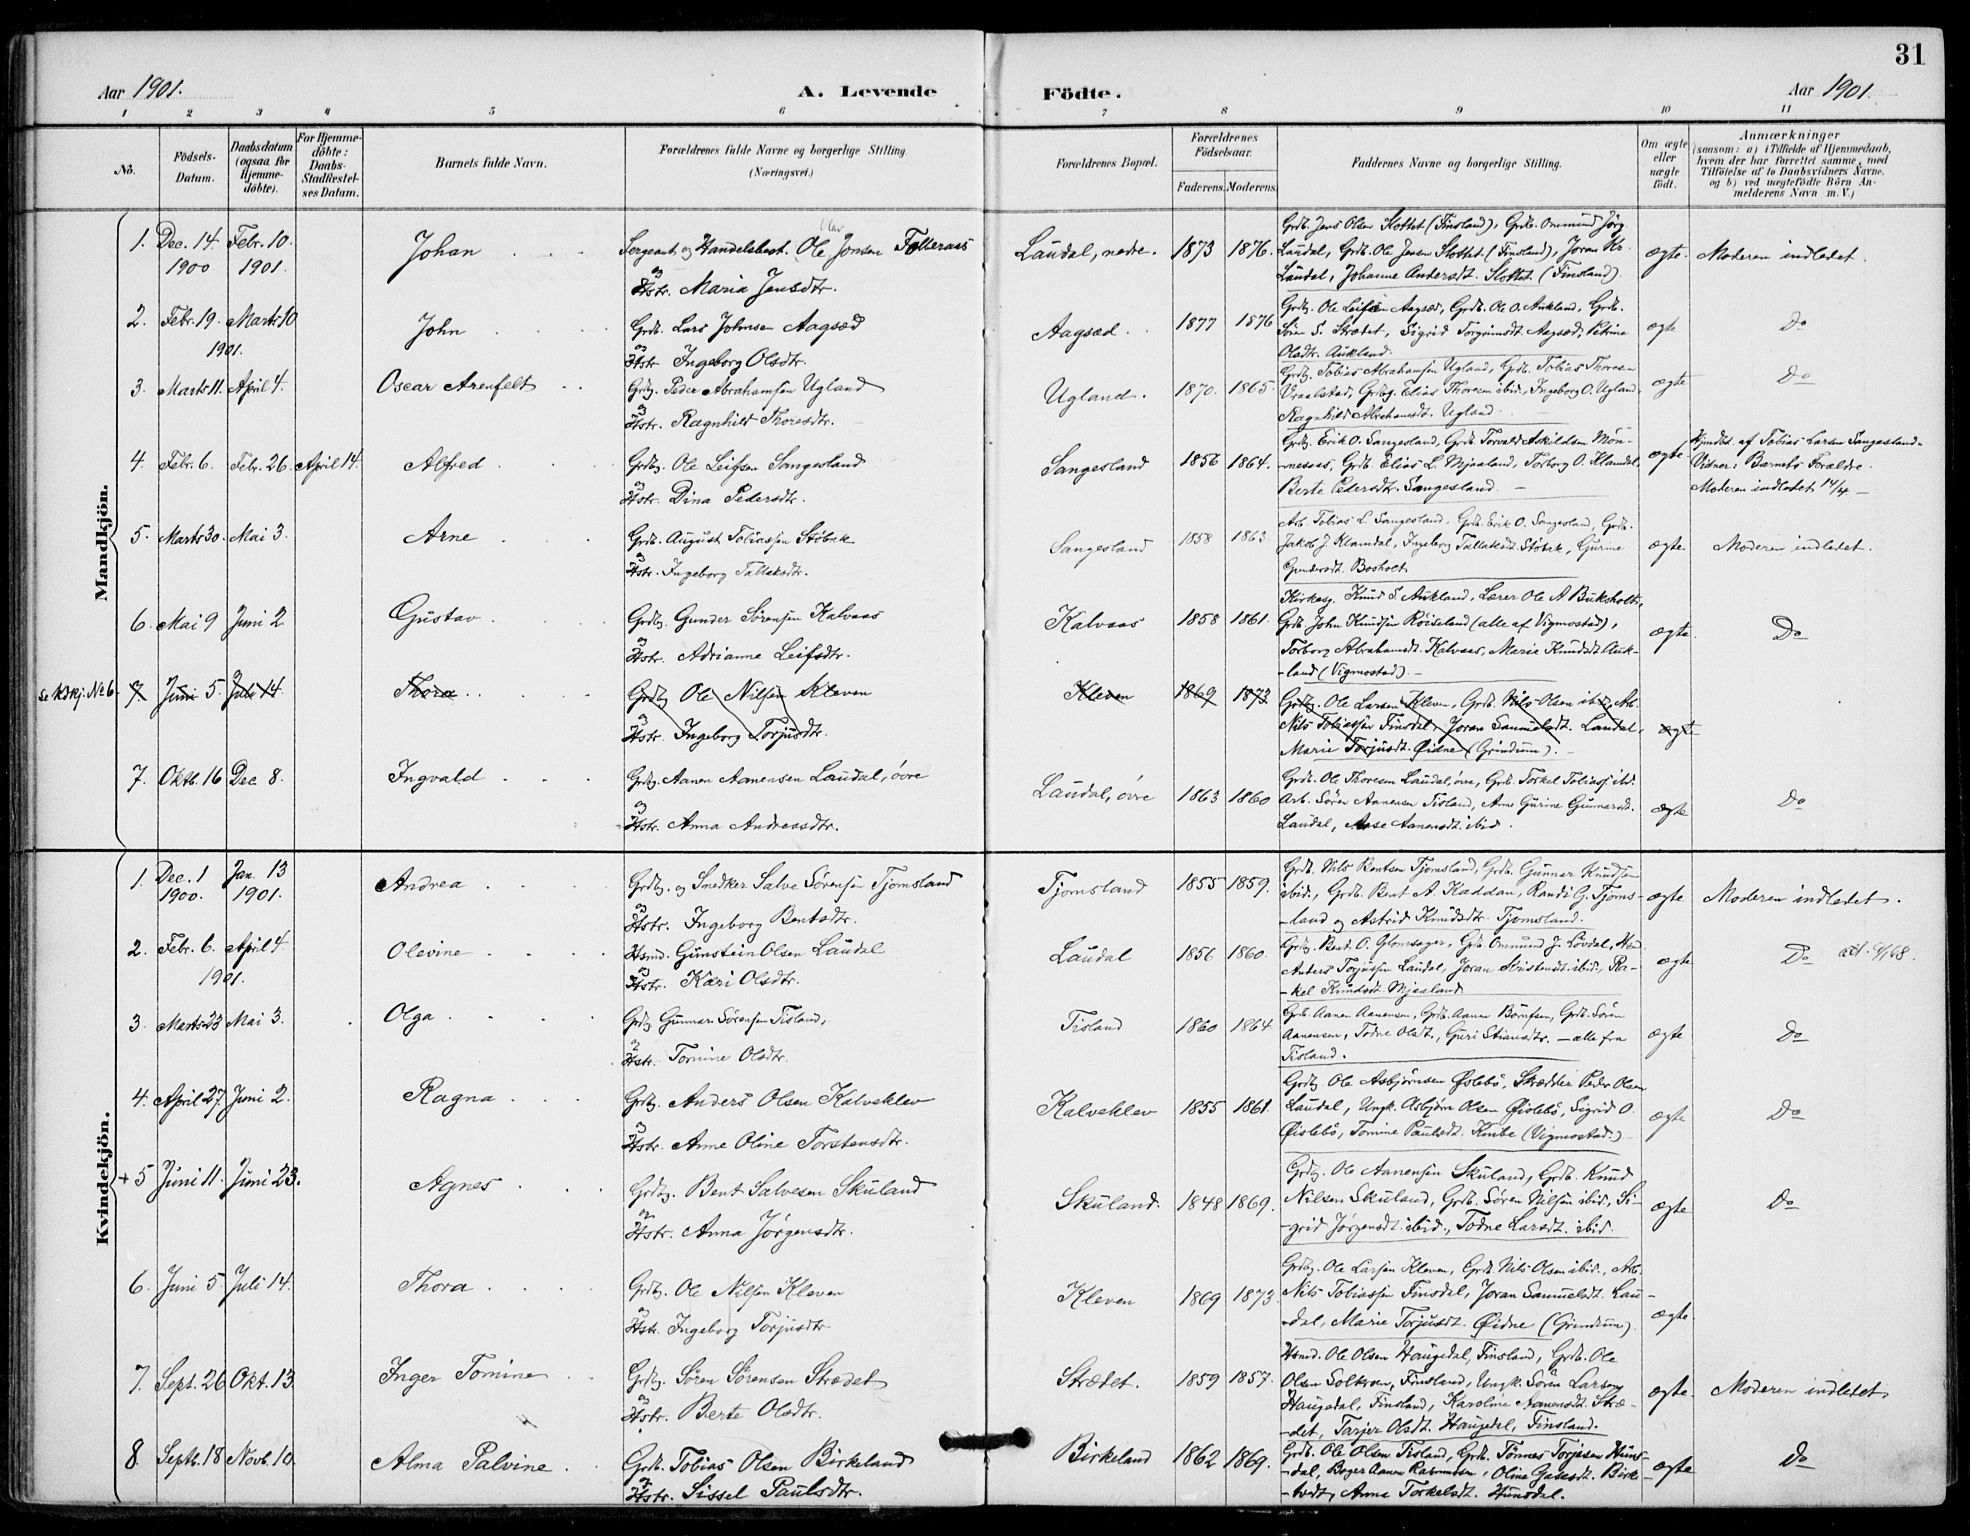 31
Aar 1901.
A. Levende
Födte.
Aar 1901.
1 2 3 4 5 6 7 8 9 10 11
No.
Födsels-
Datum.
Daabsdatum
(ogsaa for
Hjemme-
döbte).
For Hjemme-
döbte:
Daabs-
Stadfæstel-
ses Datum.
Barnets fulde Navn.
Forældrenes fulde Navne og borgerlige Stilling.
(Næringsvei.)
Forældrenes Bopæl.
Forældrenes
Födselsaar.
Faderens. Moderens.
Faddernes Navne og borgerlige Stilling.
Om ægte
eller
uægte
födt.
Anmærkninger
(saasom: a) i Tilfælde af Hjemmedaab,
hvem der har forrettet samme, med
Tilföielse af to Daabsvidners Navne,
og b) ved uægtefödte Börn An-
melderens Navn m. V.)
Mandkjön.
1. Dec. 14. 1900 Febr. 10. 1901.
Johan
Sergeant og Handelsbest. Ole Jonsen
og
Hstr. Maria Jensdtr.
Laudal, nedre. 1873 1876.
Grdb. Jens Olsen Slottet (Finsland), Grdb. Ommund Jørg.
Laudal, Grdb. Ole Jensen Slottet (Finsland), Joran Kr.
Laudal, Johanne Andersdt. Slottet. (Finsland).
ægte. Moderen indledet.
2. Febr. 19. Marts 10 1901.
John
Grdb. Lars Johnsen Aagsæd
og
Hstr. Ingeborg Olsdtr.
Aagsæd. 1877 1876
Grdbg. Ole Leifsen Aagsæd, Grdb. Ole O. Aukland, Grdb.
Sören S. Strædet, Sigrid Torgrimsdt. Aagsæd, Petrine
Olsdtr. Aukland.
ægte Do
3. Marts 11. April 4.
Oscar Arenfelt
Grdbg. Peder Abrahamsen Ugland
og
Hstr. Ragnhild Thoresdtr.
Ugland. 1870. 1865.
Grdbg. Tobias Abrahamsen Ugland, Grdb. Tobias Thores-
Vraalstad, Grdbg. Elias Thoresen ibid., Ingeborg O. Ugland.
Ragnhild Abrahamsdt. Ugland.
ægte Do
4. Febr. 6. Febr. 26. April 14.
Alfred
Grdbg. Ole Leifsen Sangesland
og
Hstr. Dina Pedersdtr.
Sangesland 1856 1864.
Grdbg. Erik O. Sangesland, Grdb. Torvald Askildsen Møn-
-nesaas, Grdb. Elias L. Mjaaland, Torborg O. Klamdal,
Berte Pedersdtr. Sangesland.
ægte. Hjmdøbt. af Tobias Larsen Sangesland.
Vidner: Barnets Forældre.
Moderen indledet 14/4.
5. Marts 30. Mai 3.
Arne
Grdb. August Tobiassen Støbak
og
Hstr. Ingeborg Tallaksdtr.
Sangesland 1858 1863
Arb. Tobias L. Sangesland, Grdb. Erik O. Sangesland, Grdb.
Jakob J. Klamdal, Ingeborg Tallaksdt. Støbak, Gurine
Gundersdt. Bosholt.
ægte Moderen indledet.
6. Mai 9 Juni 2
Gustav
Grdbg. Gunder Sörensen Kalvaas
og
Hstr. Adrianne Leifsdtr.
Kalvaas 1858 1861.
Kirkesg. Knud S. Aukland, Lærer Ole A Buksholt,
Grdb. John Knudsen Röiseland (alle af Vigmostad),
Torborg Abrahamsdt. Kalvaas, Maria Knudsdt. Auk-
-land (Vigmostad).
ægte. Do
Se Kvkj. No 6. 7. Juni 5. Juli 14.
Thora
Grdbg. Ole Nilsen Kleven
og
Hstr. Ingeborg Torjusdtr.
Kleven 1869 1873
Grdbg. Ole Larsen Kleven, Grdb. Nils Olsen ibid., Arb.
Nils Tobiassen Finsdal, Joran Samuelsdt. Laudal,
Marie Torjusdt. Øidne (Grindum).
ægte
7. Oktb. 16 Dec 8.
Ingvald
Grdbg. Aanen Aanensen Laudal, øvre
og
Hstr. Anna Andreasdtr.
Laudal, øvre 1863 1860
Grdb. Ole Thoresen Laudal, øvre, Grdb. Torkel Tobiass. ibd.
Arb. Sören Aanensen Tisland, Anne Gurine Gunnarsdt.
Laudal, Aase Aanensdt. ibid.
ægte Do
Kvindekjön.
1. Dec. 1 1900. Jan. 13 1901.
Andrea
Grdbg. og Snedker Salve Sørensen Tjomsland
og
Hstr. Ingeborg Bentsdtr.
Tjomsland 1855 1859.
Grdb. Nils Bentsen Tjomsland, Grdb. Gunnar Knudsen
ibid., Grdb. Bent A. Kaddan, Randi G. Tjoms-
-land og Astrid Knudsdtr. Tjomsland.
ægte Moderen indledet.
2. Febr. 6. April 4 1901.
Olevine
Hsmd. Gunstein Olsen Laudal
og
Hstr. Kari Olsdtr.
Laudal 1856 1860.
Grdbg. Bent O. Glomsager, Grdb. Ommund J. Løvdal, Hsmd.
Anders Torjussen Laudal, Joran Kristensdt. ibid., Ra-
-kel Knudsdt. Mjaaland
ægte Do
3. Marts 23 Mai 3.
Olga
Grdbg. Gunnar Sörensen Tisland,
og
Hstr. Tomine Olsdtr.
Tisland 1860 1864
Grdb. Aanen Aanensen, Grdb. Aanen Börufsen, Grdb. Sören
Aanensen, Todne Olsdt., Guri Stiansdtr. — alle fra
Tisland.
ægte Do
4. April 27. Juni 2.
Ragna
Grdbg. Anders Olsen Kalveklev
og
Hstr. Anne Oline Torstensdtr.
Kalveklev 1855 1861.
Grdbg. Ole Asbjørnsen Øslebö, Skrædder Peder Olsen
Laudal, Ungk. Asbjørn Olsen Øislebö, Sigrid O.
Øislebö, Tomine Paulsdt. Knibe (Vigmostad.)
ægte Do
+ 5 Juni 11. Juni 23.
Agnes
Grdbg. Bent Salvesen Skuland
og
Hstr. Anna Jørgensdtr.
Skuland. 1848 1869.
Grdbg. Ole Aanensen Skuland, Grdb. Knud
Nilsen Skuland, Grdb. Sören Nilsen ibid., Si-
-grid Jörgensdt. ibid., Todne Larsdt. ibid.
ægte Do
6. Juni 5. Juli 14.
Thora
Grdbg. Ole Nilsen Kleven
og
Hstr. Ingeborg Torjusdtr
Kleven 1869 1873.
Grdbg. Ole Larsen Kleven, Grdb. Nils Olsen ibid., Arb.
Nils Tobiassen Finsdal, Joran Samuelsdt. Lau-
-dal, Marie Torjusdt. Øidne (Grindum).
ægte.
7. Sept. 26 Okt. 13.
Inger Tomine
Grdbg. Sören Sörensen Strædet
og
Hstr. Berte Olsdtr.
Strædet. 1859 1857.
Hsmd. Ole Olsen Haugedal, Finsland, Grdb. Ole
Olsen Finsland, Ungk. Sören Larsen
Haugedal, Finsland, Karoline Aanensdt. Stræ-
-det, Tarjer Olsdt. Haugedal, Finsland.
ægte. Moderen indledet
8. Septb. 18 Novb. 10.
Alma Palvine
Grdb. Tobias Olsen Birkeland
og
Hstr. Sissel Paulsdtr.
Birkeland 1862 1869.
Grdb. Ole Olsen Tisland, Grdb. Tönnes Torjusen Huns-
-dal, Aanen Rasmussen, Oline Birke-
Anna Torkelsdt. Hunsdal.
ægte Do